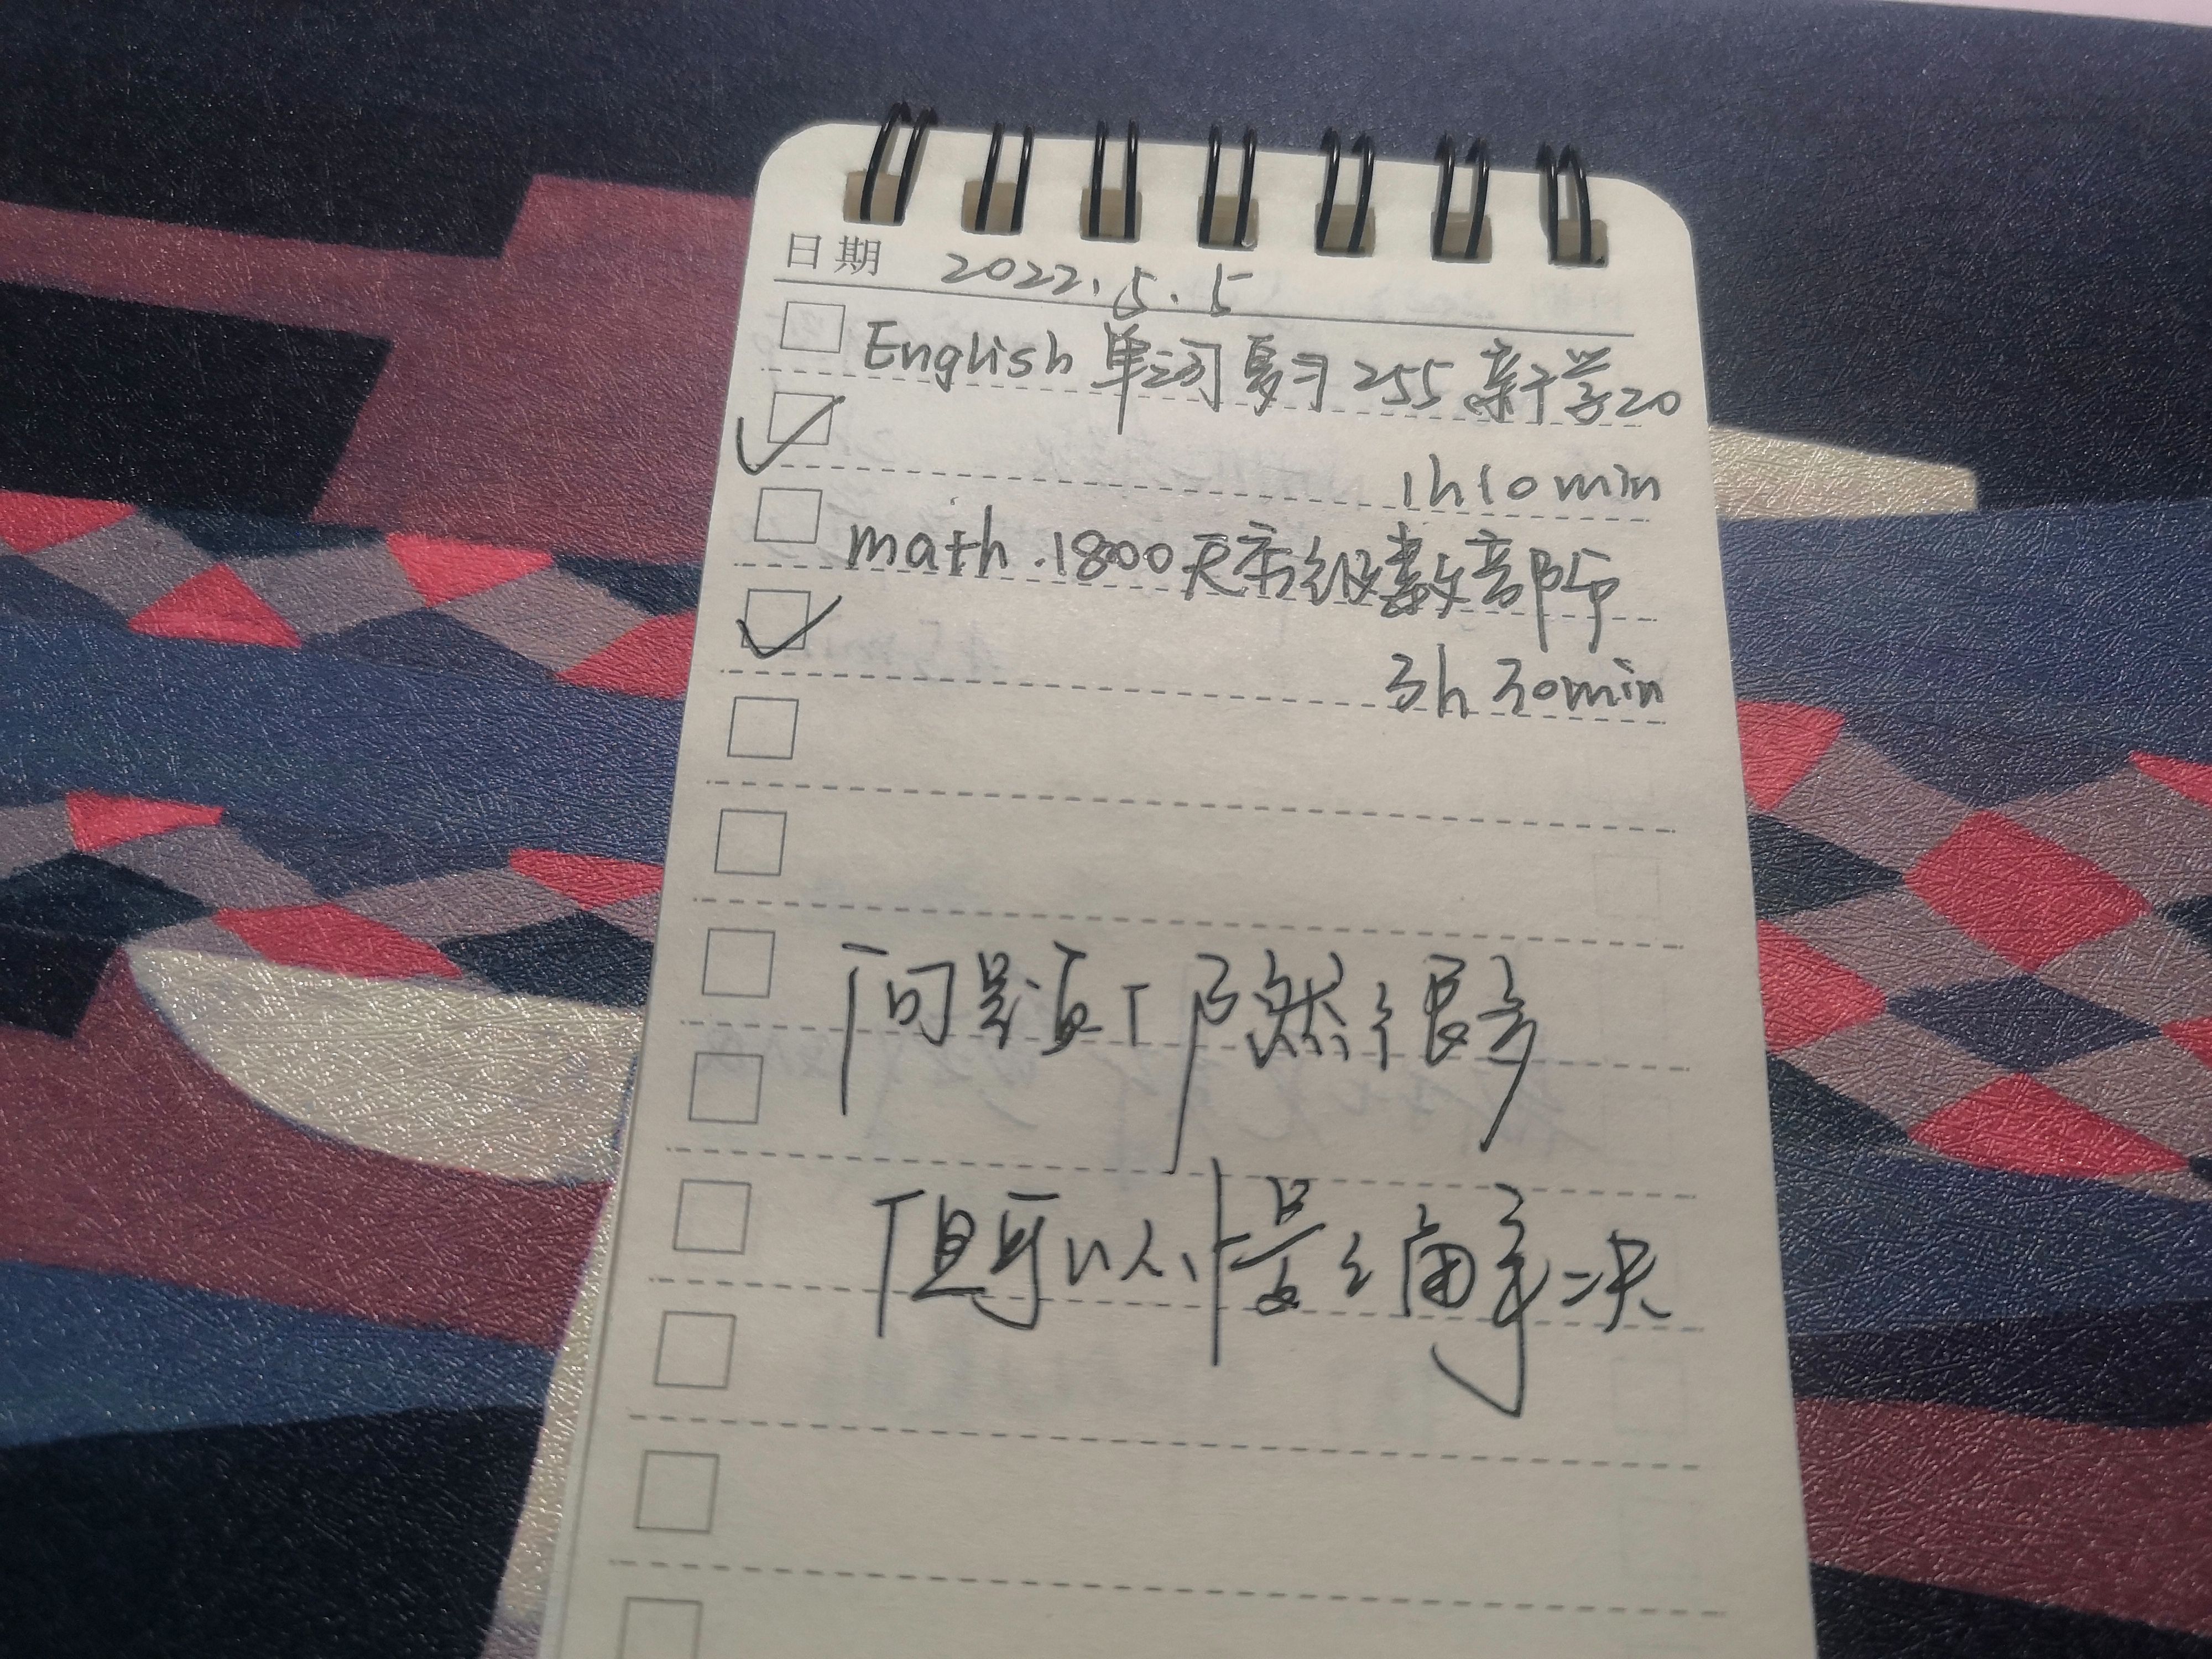 日期 2022.5.5
English 单词复习255 新学20
1h10min
math.1800 无穷级数部
3h 30min
问题虽然很多
但可以慢慢解决